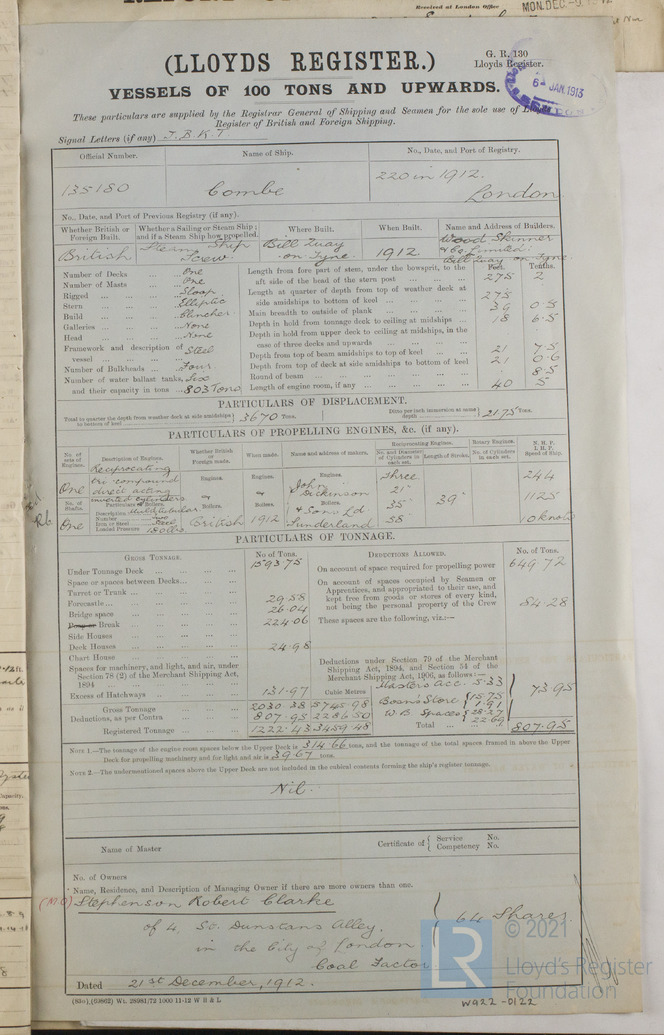 Received at London Office
MON. DEC
(LLOYDS REGISTER.)
G. R. 130
Lloyds Register.
VESSELS OF 100 TONS AND UPWARDS.
6 JAN. 1913
These particulars are supplied by the Registrar General of Shipping and Seamen for the sole use of Lloyds
Register of British and Foreign Shipping.
Signal Letters (if any) J.B.K.T.
Official Number. Name of Ship. No., Date, and Port of Registry.
135180 Combe 220 in 1912. London
No., Date, and Port of Previous Registry (if any).
Whether British or Foreign Built. Whether a Sailing or Steam Ship; and if a Steam Ship how propelled. Where Built. When Built. Name and Address of Builders.
British Steam Ship Screw Bill Quay on Tyne. 1912 Wood Skinner & Co. Limited. Bill Quay on Tyne.
Feet. Tenths.
Number of Decks ... One
Number of Masts ... One
Rigged ... Sloop
Stern ... Elliptic
Build ... Clincher
Galleries ... None
Head ... None
Framework and description of vessel ... Steel
Number of Bulkheads ... Four
Number of water ballast tanks, Six
and their capacity in tons ... 803 Tons
Length from fore part of stem, under the bowsprit, to the aft side of the head of the stern post ... 275 2
Length at quarter of depth from top of weather deck at side amidships to bottom of keel ... 275
Main breadth to outside of plank ... 39 0.5
Depth in hold from tonnage deck to ceiling at midships ... 18 6.5
Depth in hold from upper deck to ceiling at midships, in the case of three decks and upwards
Depth from top of beam amidships to top of keel ... 21 7.5
Depth from top of deck at side amidships to bottom of keel 21 0.6
Round of beam ... 8.5
Length of engine room, if any ... 40 5
PARTICULARS OF DISPLACEMENT.
Total to quarter the depth from weather deck at side amidships to bottom of keel 3670 Tons.
Ditto per inch immersion at same depth 21.75 Tons.
PARTICULARS OF PROPELLING ENGINES, &c. (if any).
No. of sets of Engines. Description of Engines. Whether British or Foreign made. When made. Name and address of makers. Reciprocating Engines. No. and Diameter of Cylinders in each set. Length of Stroke. Rotary Engines. No. of Cylinders in each set. N.H.P. I.H.P. Speed of Ship.
One Reciprocating tri compound direct acting inverted cylinders
Engines. Engines. Engines.
Three 21" 35" 58" 39"
244
1125
10 knots
No. of Shafts. Particulars of Boilers.
Description Multitubular
Number
Iron or Steel Steel
Loaded Pressure
One British 1912
Boilers. Boilers. Boilers.
John Dickinson & Sons Ld Sunderland
PARTICULARS OF TONNAGE.
GROSS TONNAGE. No of Tons.
Under Tonnage Deck ... 1593.75
Space or spaces between Decks...
Turret or Trunk ...
Forecastle ... 29.58
Bridge space ... 26.04
Poop or Break ... 224.06
Side Houses
Deck Houses ... 24.98
Chart House
Spaces for machinery, and light, and air, under Section 78 (2) of the Merchant Shipping Act, 1894
Excess of Hatchways ... 131.97
Cubic Metres
Gross Tonnage 2030.38 5745.98
Deductions, as per Contra 807.95 2286.50
Registered Tonnage 1222.43 3459.48
DEDUCTIONS ALLOWED. No. of Tons.
On account of space required for propelling power 649.72
On account of spaces occupied by Seamen or Apprentices, and appropriated to their use, and kept free from goods or stores of every kind, not being the personal property of the Crew 84.28
These spaces are the following, viz.:—
Deductions under Section 79 of the Merchant Shipping Act, 1894, and Section 54 of the Merchant Shipping Act, 1906, as follows:—
Masters acc. 5.33
Bosn's Store { 15.75 1.91
W.B. Spaces { 28.27 22.69
73.95
Total ... 807.95
NOTE 1.—The tonnage of the engine room spaces below the Upper Deck is 314.66 tons, and the tonnage of the total spaces framed in above the Upper
Deck for propelling machinery and for light and air is 39.67 tons.
NOTE 2.—The undermentioned spaces above the Upper Deck are not included in the cubical contents forming the ship's register tonnage.
Nil.
Name of Master
Certificate of { Service No. Competency No.
No. of Owners
Name, Residence, and Description of Managing Owner if there are more owners than one.
(M.O) Stephenson Robert Clarke
of 4, St. Dunstans Alley,
in the City of London.
Coal Factor
64 Shares.
Dated 21st December, 1912.
(63rd.) (69862) Wt. 28981/72 1000 11-12 W B & L
W922-0122
LR
© 2021
Lloyd's Register
Foundation